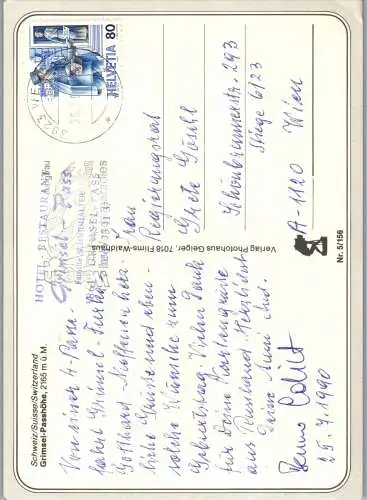 Schweiz/Suisse/Switzerland
Grimsel-Passhöhe, 2165 m ü.M.
HOTEL-RESTAURANT
Grimsel-Pass
GRIMSEL-PASS
Von einer 4-Pässe-
fahrt Grimsel-Furka-
Gotthard-Nuffenen herz-
liche Grüsse und eben-
solche Wünsche zum
Geburtstag. Vielen Dank
für Deine Kartengrüsse
aus Russland. Herzlichst
Deine Anni und
25.7.1990
Verlag Photohaus Geiger, 7018 Flims-Waldhaus
HELVETIA 80
3923
Frau
Regierungsrat
Grete Göschl
Schönbrunnerstr. 293
Stiege 6/23
A-1120 Wien
Nr. 5/156